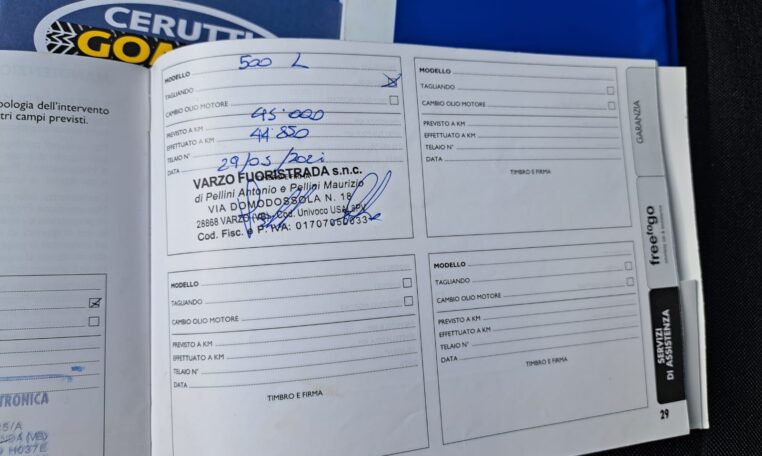 CERUTTI
GOM
ologia dell'intervento
tri campi previsti.
MODELLO 500 L
TAGLIANDO
CAMBIO OLIO MOTORE
PREVISTO A KM 45.000
EFFETTUATO A KM 44.850
TELAIO N°
DATA 29/05/2021
VARZO FUORISTRADA s.n.c.
di Pellini Antonio e Pellini Maurizio
VIA DOMODOSSOLA N. 18
28868 VARZO (VB) Cod. Univoco USA
Cod. Fisc. e P. IVA:
MODELLO
TAGLIANDO
CAMBIO OLIO MOTORE
PREVISTO A KM
EFFETTUATO A KM
TELAIO N°
DATA
TIMBRO E FIRMA
MODELLO
TAGLIANDO
CAMBIO OLIO MOTORE
PREVISTO A KM
EFFETTUATO A KM
TELAIO N°
DATA
TIMBRO E FIRMA
MODELLO
TAGLIANDO
CAMBIO OLIO MOTORE
PREVISTO A KM
EFFETTUATO A KM
TELAIO N°
DATA
TIMBRO E FIRMA
GARANZIA
freetogo
SERVIZI
DI ASSISTENZA
29
TRONICA
25/A
(VB)
H037E